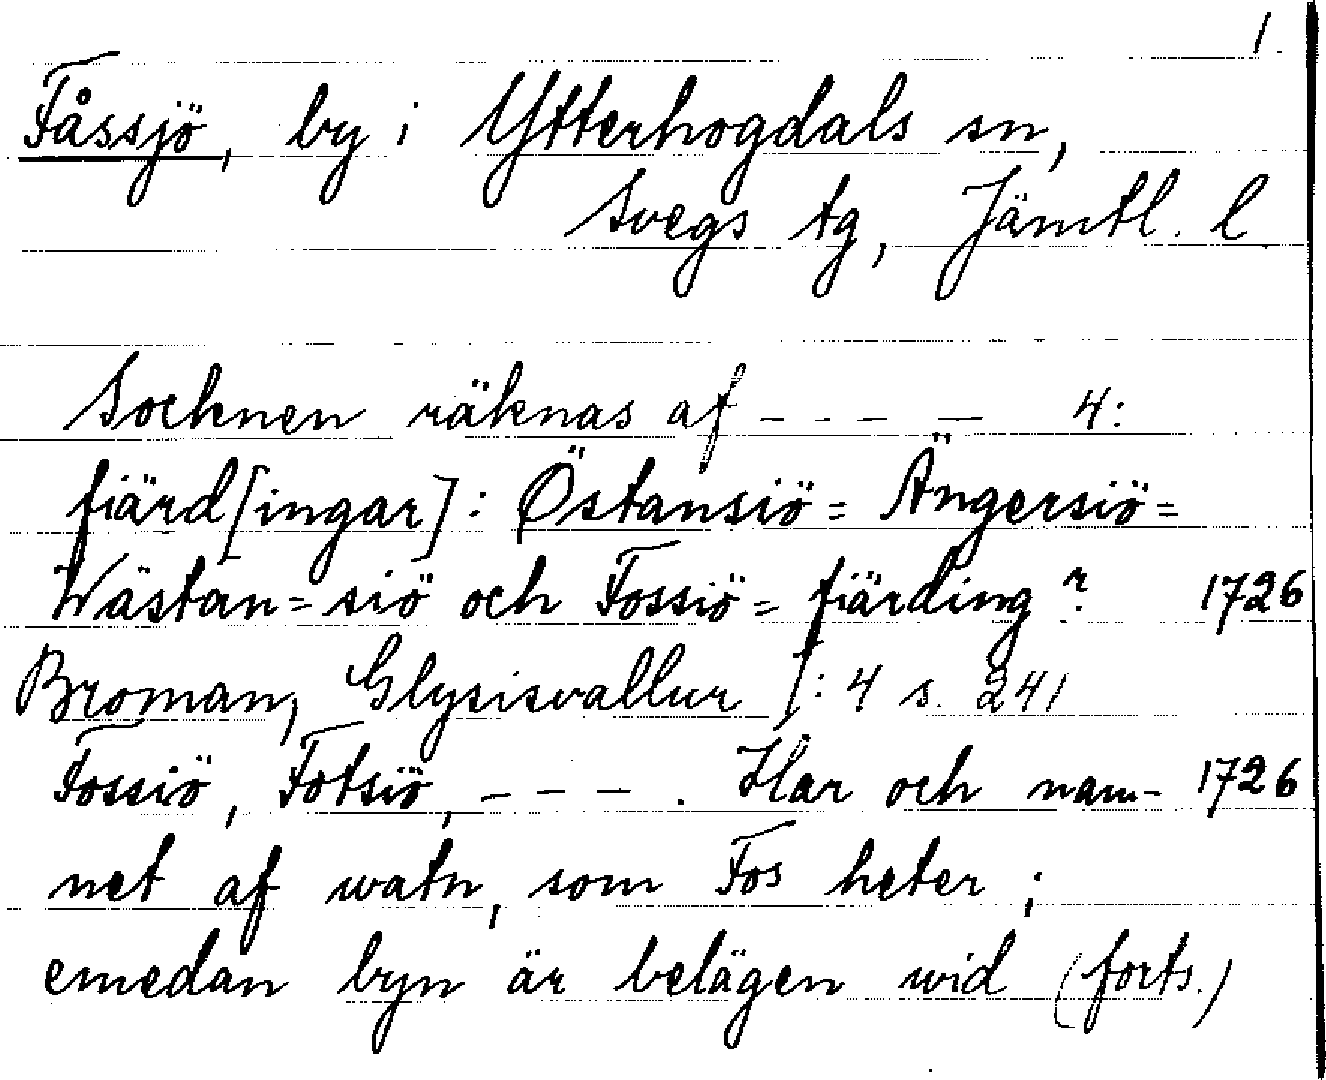 1.
Fåssjö, by i Ytterhogdals sn,
Svegs tg, Jämtl. l.
Socknen räknas af - - - - 4:
fiärd[ingar]: Östansiö= Ängersiö=
Wästan=siö och Fossiö= fiärding? 1726
Broman, Glysisvallur I: 4 s. 241
Fossiö, Fotsiö, - - - . Har och nam- 1726
net af watn, som Fos heter;
emedan byn är belägen wid (forts.)